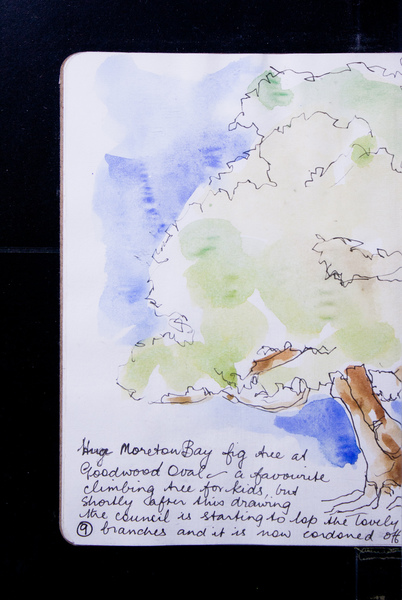 Huge Moreton Bay fig tree at
Goodwood Oval - a favourite
climbing tree for kids, but
shortly after this drawing
the council is starting to lop the lovely
⑨ branches and it is now cordoned off